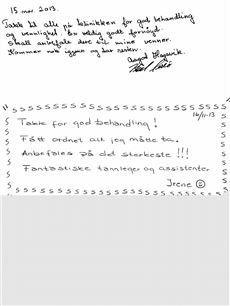 15 mar. 2013.
Takk til alle på klinikken for god behandling
og vennlighet. Er veldig godt fornøyd.
Skall anbefale dere til mine venner.
Kommer nok igjen og
14/11-13
Takk for god behandling!
Fått ordnet alt jeg måtte ta.
Anbefales på det sterkeste !!!
Fantastiske tannleger og assistenter.
Irene